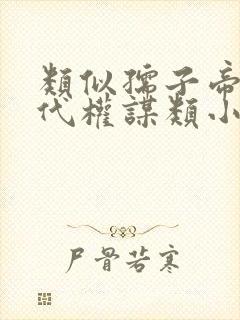 類似孺子帝
代權謀類小
尸骨若寒